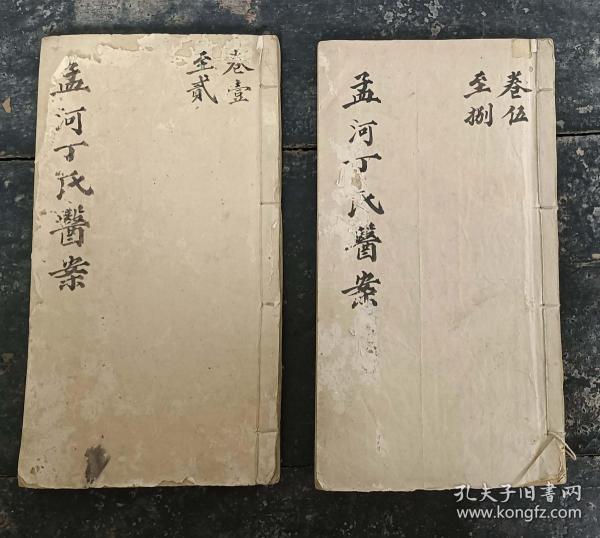 卷壹
至貳
孟河丁氏醫案
卷伍
至捌
孟河丁氏醫案
孔夫子旧書网
www.kongfz.com